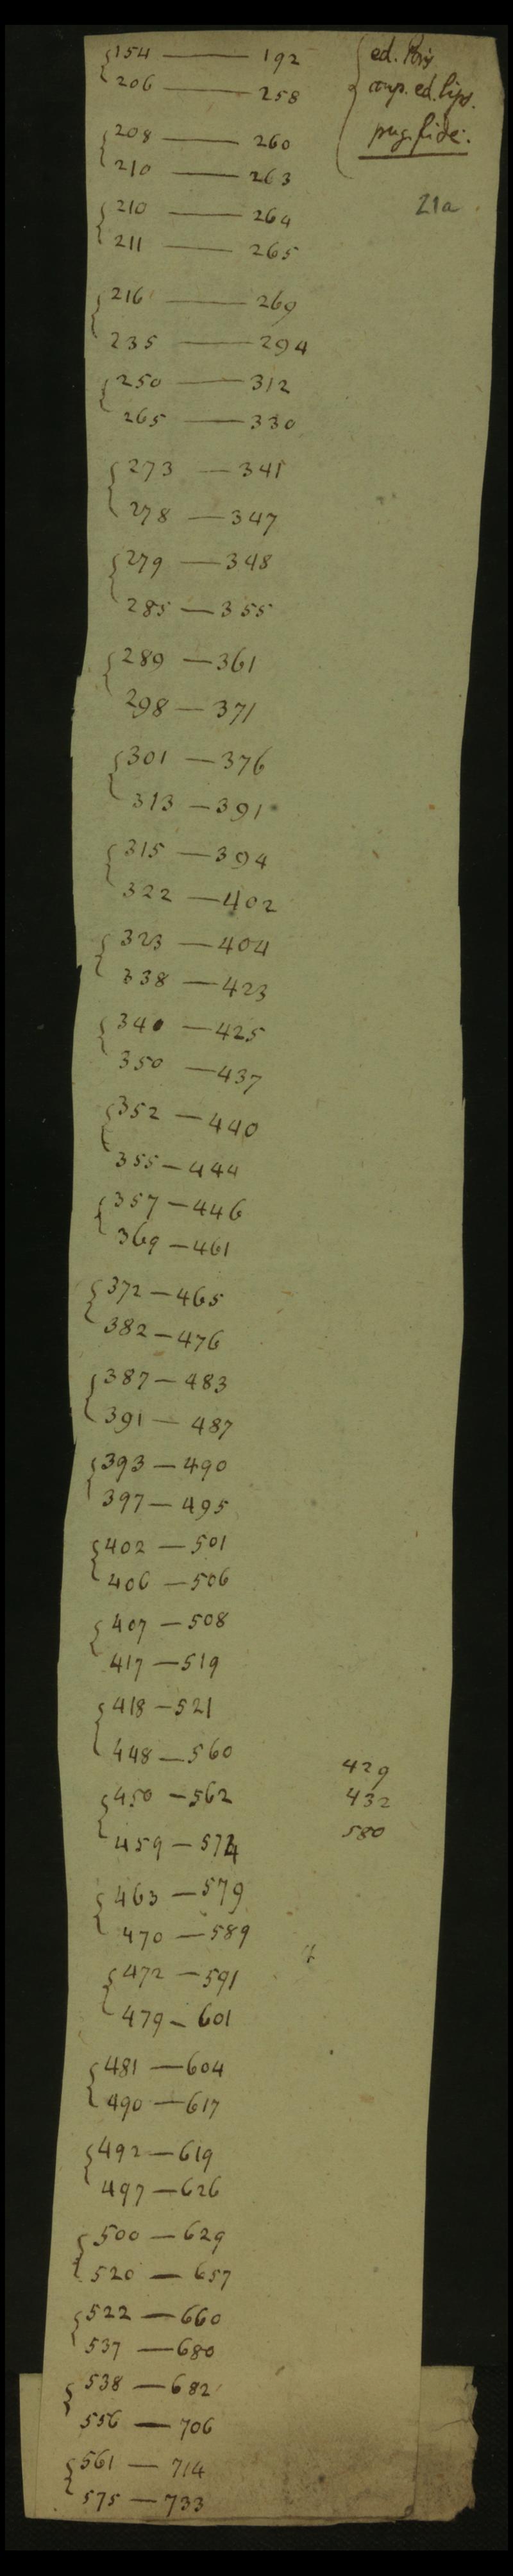 154 — 192
206 — 258
ed. Pris
comp. ed. lips.
pug. fidei.
208 — 260
210 — 263
21a
210 — 264
211 — 265
216 — 269
235 — 294
250 — 312
265 — 330
273 — 341
278 — 347
279 — 348
285 — 355
289 — 361
298 — 371
301 — 376
313 — 391
315 — 394
322 — 402
323 — 404
338 — 423
340 — 425
350 — 437
352 — 440
355 — 444
357 — 446
369 — 461
372 — 465
382 — 476
387 — 483
391 — 487
393 — 490
397 — 495
402 — 501
406 — 506
407 — 508
417 — 519
418 — 521
448 — 560
450 — 562
459 — 574
429
432
580
463 — 579
470 — 589
472 — 591
479 — 601
481 — 604
490 — 617
492 — 619
497 — 626
500 — 629
520 — 657
522 — 660
537 — 680
538 — 682
556 — 706
561 — 714
575 — 733